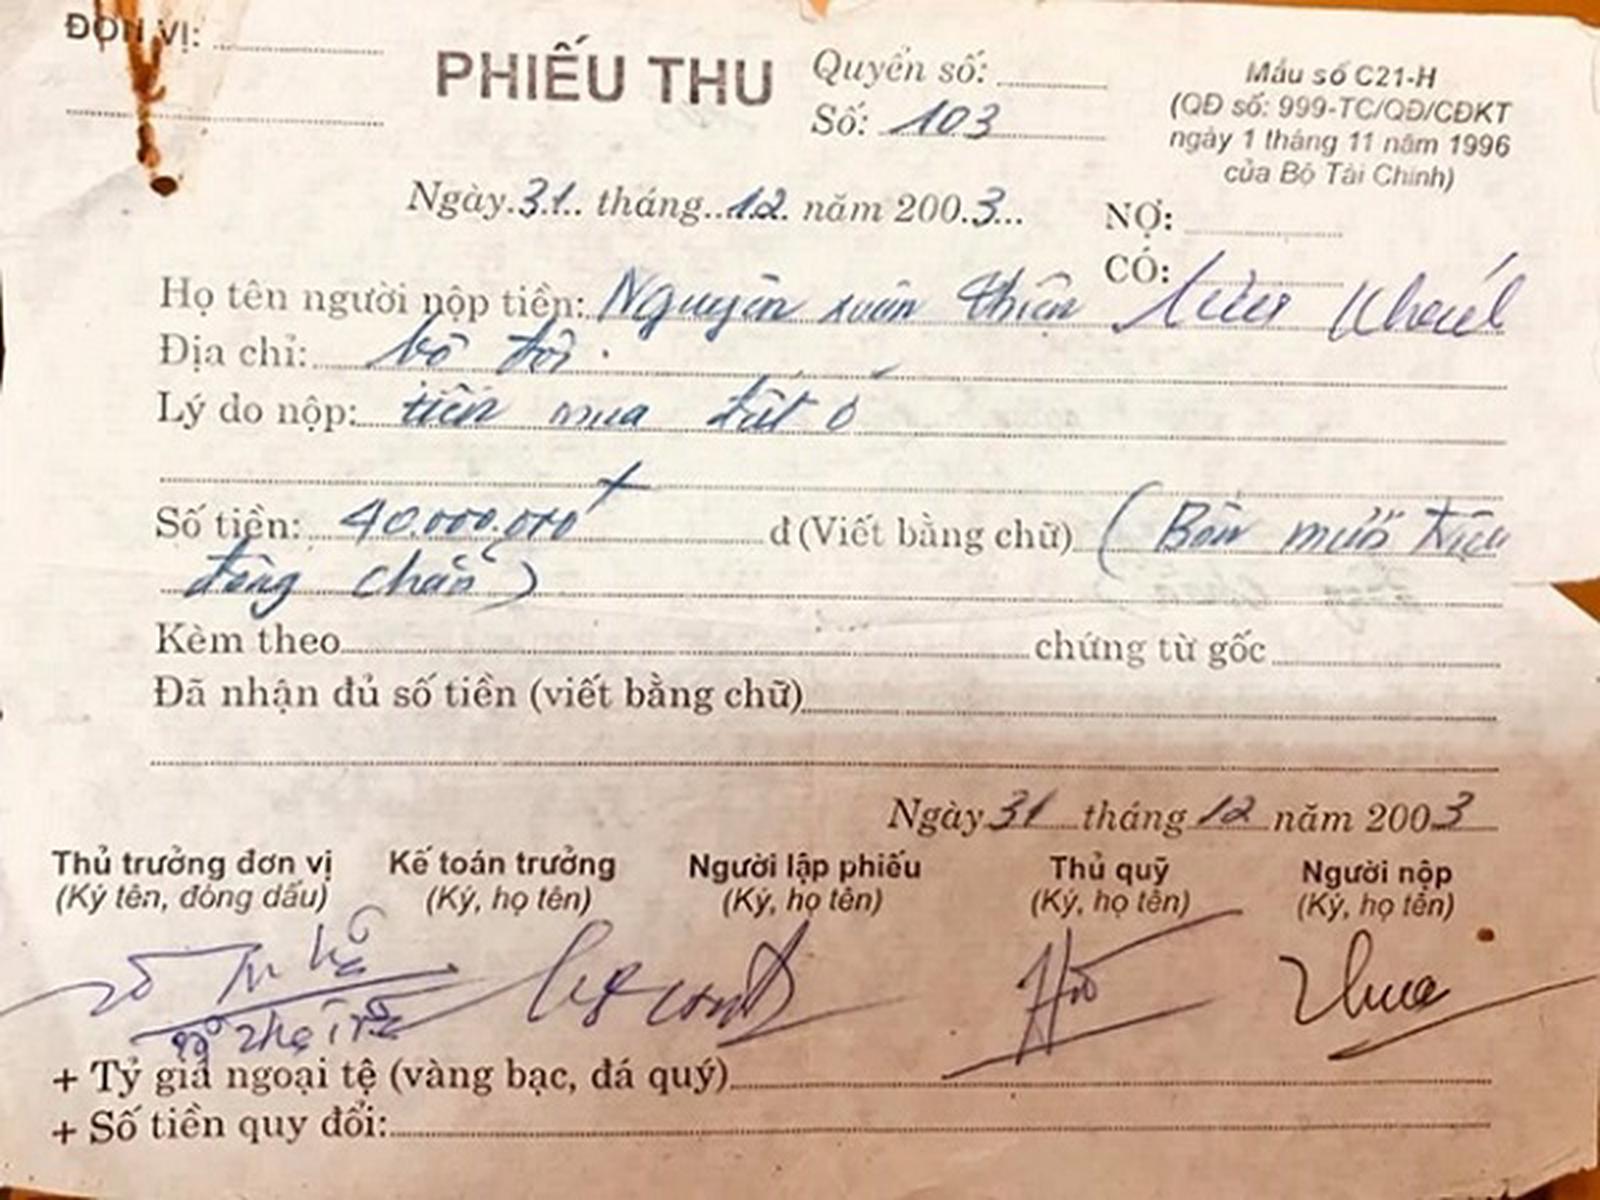 ĐƠN VỊ:
PHIẾU THU
Quyển số:
Số: 103
Mẫu số C21-H
(QĐ số: 999-TC/QĐ/CĐKT
ngày 1 tháng 11 năm 1996
của Bộ Tài Chính)
Ngày 31 tháng 12 năm 2003
NỢ:
CÓ:
Họ tên người nộp tiền: Nguyễn xuân Thiện
Địa chỉ: bộ đội
Lý do nộp: tiền mua đất ở
Số tiền: 40.000.000đ đ (Viết bằng chữ) (Bốn mươi triệu
đồng chẵn)
Kèm theo chứng từ gốc
Đã nhận đủ số tiền (viết bằng chữ)
Ngày 31 tháng 12 năm 2003
Thủ trưởng đơn vị Kế toán trưởng Người lập phiếu Thủ quỹ Người nộp
(Ký tên, đóng dấu) (Ký, họ tên) (Ký, họ tên) (Ký, họ tên) (Ký, họ tên)
+ Tỷ giá ngoại tệ (vàng bạc, đá quý)
+ Số tiền quy đổi: